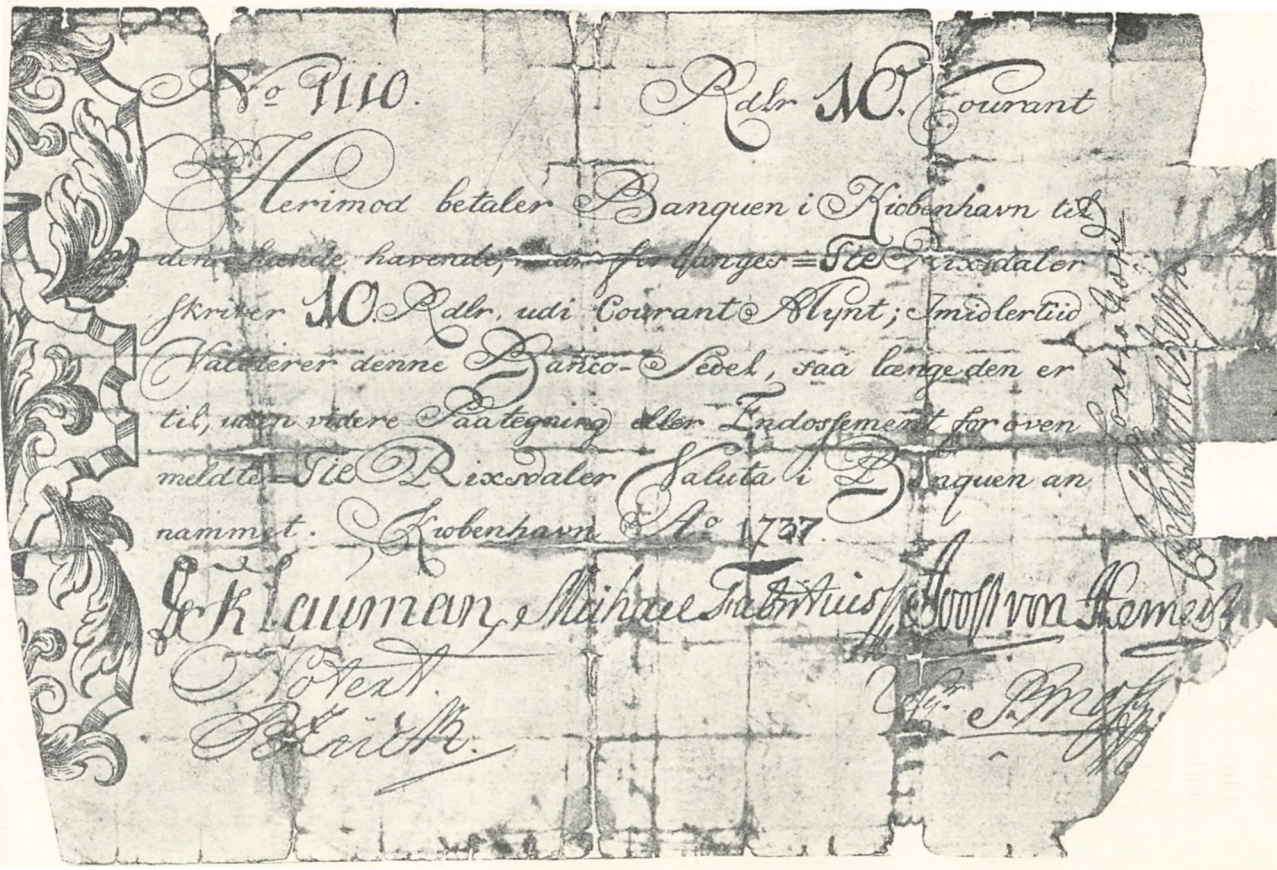 No 1110. Rdlr 10. Courant
Herimod betaler Banquen i Kiobenhavn til
den ihænde havende, naar forlanges = Tie Rixsdaler
skriver 10. Rdlr. udi Courant Mynt; Imidlertiid
Validerer denne Banco-Sedel, saa længe den er
til, uden videre Paategning eller Endossement for oven
meldte = Tie Rixsdaler Valuta i Banquen an
nammet. Kiobenhavn Ao 1737.
Klauman, Michael Fabritius, Joost von Hemert
Notert.